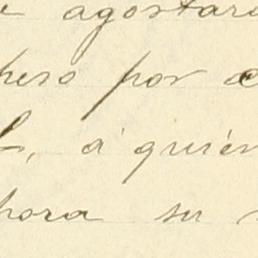 agostar
pero por
á quién
hora su